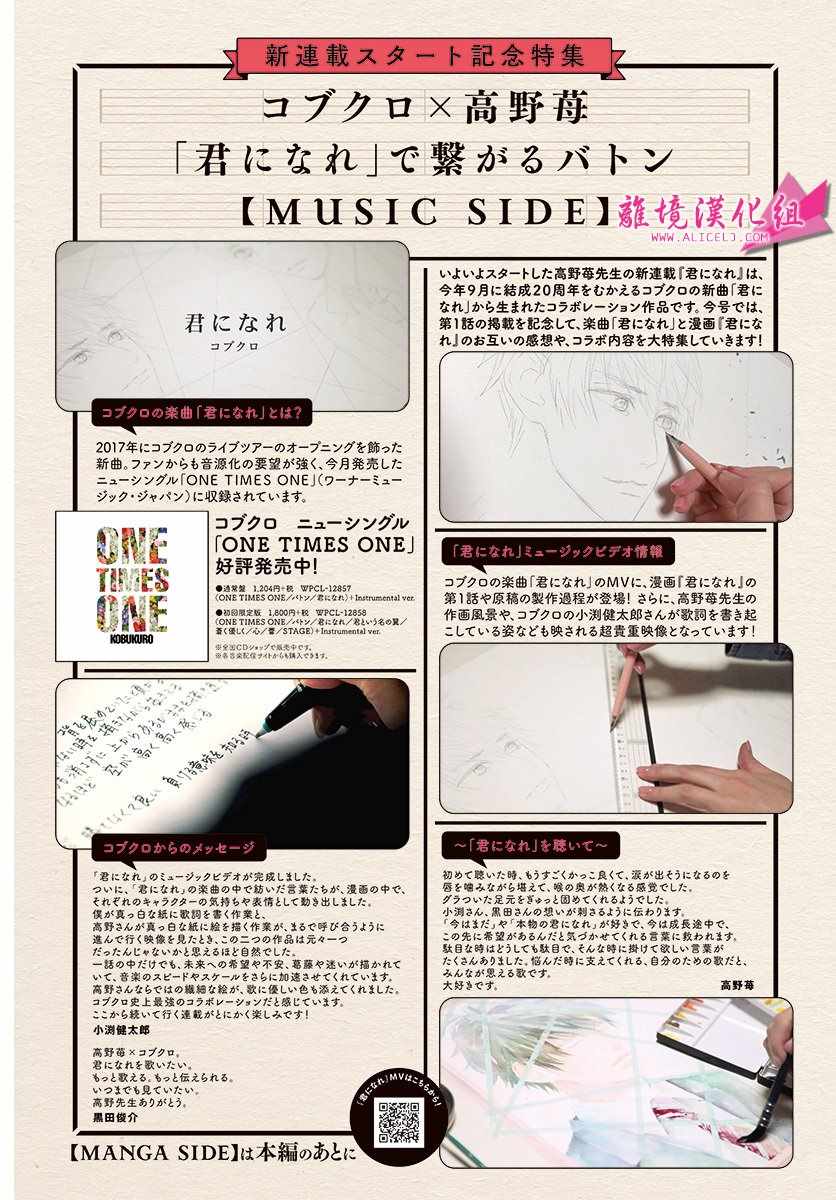 新連載スタート記念特集
コブクロ×高野苺
「君になれ」で繋がるバトン
【MUSIC SIDE】
離境漢化組
WWW.ALICELJ.COM
君になれ
コブクロ
コブクロの楽曲「君になれ」とは?
2017年にコブクロのライブツアーのオープニングを飾った
新曲。ファンからも音源化の要望が強く、今月発売した
ニューシングル「ONE TIMES ONE」(ワーナーミュー
ジック・ジャパン)に収録されています。
ONE
TIMES
ONE
KOBUKURO
コブクロ ニューシングル
「ONE TIMES ONE」
好評発売中!
●通常盤 1,204円+税 WPCL-12857
(ONE TIMES ONE/バトン/君になれ)+Instrumental ver.
●初回限定版 1,800円+税 WPCL-12858
(ONE TIMES ONE/バトン/君になれ/君という名の翼/
蒼く優しく/心/蕾/STAGE)+Instrumental ver.
※全国CDショップで販売中です。
※各音楽配信サイトからも購入できます。
コブクロからのメッセージ
「君になれ」のミュージックビデオが完成しました。
ついに、「君になれ」の楽曲の中で紡いだ言葉たちが、漫画の中で、
それぞれのキャラクターの気持ちや表情として動き出しました。
僕が真っ白な紙に歌詞を書く作業と、
高野さんが真っ白な紙に絵を描く作業が、まるで呼び合うように
進んで行く映像を見たとき、この二つの作品は元々一つ
だったんじゃないかと思えるほど自然でした。
一話の中だけでも、未来への希望や不安、葛藤や迷いが描かれて
いて、音楽のスピードやスケールをさらに加速させてくれています。
高野さんならではの繊細な絵が、歌に優しい色も添えてくれました。
コブクロ史上最強のコラボレーションだと感じています。
ここから続いて行く連載がとにかく楽しみです!
小渕健太郎
高野苺×コブクロ。
君になれを歌いたい。
もっと歌える。もっと伝えられる。
いつまでも見ていたい。
高野先生ありがとう。
黒田俊介
【MANGA SIDE】は本編のあとに
「君になれ」MVはこちらから!
いよいよスタートした高野苺先生の新連載『君になれ』は、
今年9月に結成20周年をむかえるコブクロの新曲「君に
なれ」から生まれたコラボレーション作品です。今号では、
第1話の掲載を記念して、楽曲「君になれ」と漫画『君にな
れ』のお互いの感想や、コラボ内容を大特集していきます!
「君になれ」ミュージックビデオ情報
コブクロの楽曲「君になれ」のMVに、漫画『君になれ』の
第1話や原稿の製作過程が登場! さらに、高野苺先生の
作画風景や、コブクロの小渕健太郎さんが歌詞を書き起
こしている姿なども映される超貴重映像となっています!
~「君になれ」を聴いて~
初めて聴いた時、もうすごくかっこ良くて、涙が出そうになるのを
唇を噛みながら堪えて、喉の奥が熱くなる感覚でした。
グラついた足元をぎゅっと固めてくれるようでした。
小渕さん、黒田さんの想いが刺さるように伝わります。
「今はまだ」や「本物の君になれ」が好きで、今は成長途中で、
この先に希望があるんだと気づかせてくれる言葉に救われます。
駄目な時はどうしても駄目で、そんな時に掛けて欲しい言葉が
たくさんありました。悩んだ時に支えてくれる、自分のための歌だと、
みんなが思える歌です。
大好きです。 高野苺